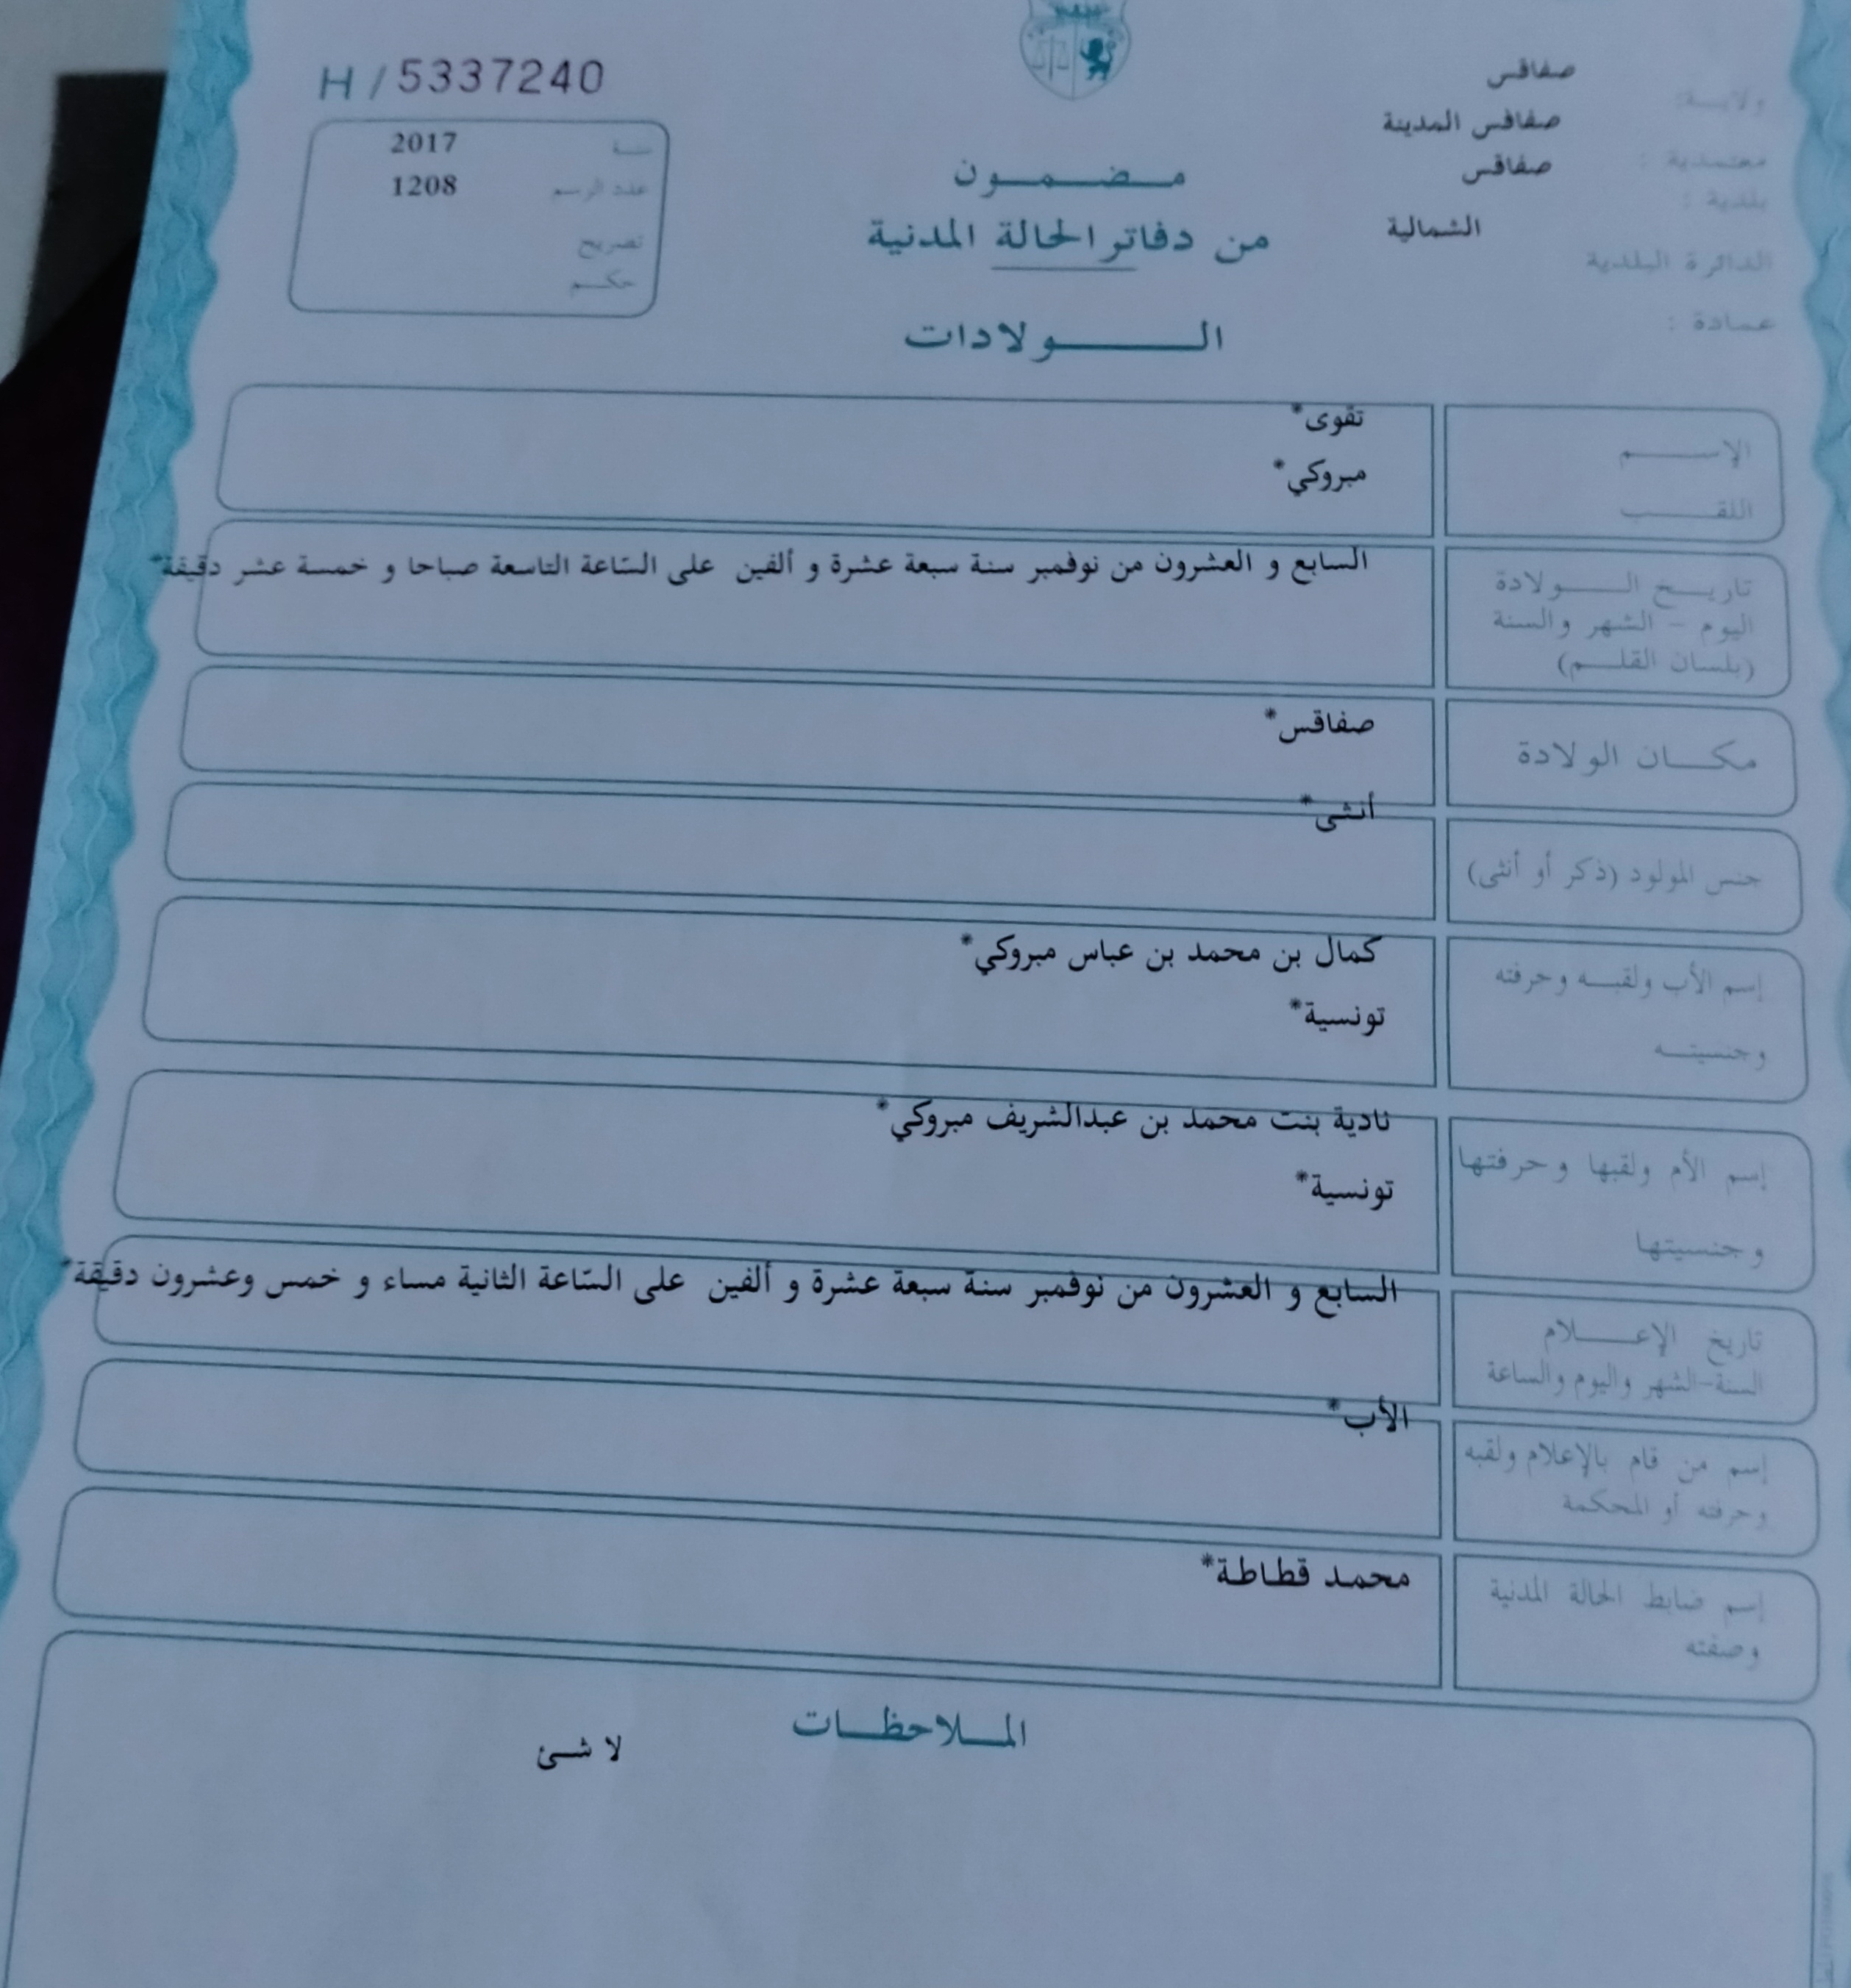 ولاية: صفاقس
معتمدية : صفاقس المدينة
بلدية : صفاقس
الدائرة البلدية الشمالية
عمادة :
مضمون
من دفاتر الحالة المدنية
الولادات
H / 5337240
سنة 2017
عدد الرسم 1208
تصريح
حكم
الإسم تقوى*
اللقب مبروكي*
تاريخ الولادة
اليوم - الشهر والسنة
(بلسان القلم)
السابع و العشرون من نوفمبر سنة سبعة عشرة و ألفين على السّاعة التاسعة صباحا و خمسة عشر دقيقة*
مكان الولادة صفاقس*
جنس المولود (ذكر أو أنثى) أنثى*
إسم الأب ولقبه وحرفته كمال بن محمد بن عباس مبروكي*
وجنسيته تونسية*
إسم الأم ولقبها وحرفتها نادية بنت محمد بن عبدالشريف مبروكي*
وجنسيتها تونسية*
تاريخ الإعلام
السنة-الشهر واليوم والساعة
السابع و العشرون من نوفمبر سنة سبعة عشرة و ألفين على السّاعة الثانية مساء و خمس وعشرون دقيقة*
إسم من قام بالإعلام ولقبه
وحرفته أو المحكمة
الأب*
إسم ضابط الحالة المدنية
وصفته
محمد قطاطة*
الملاحظات
لا شئ